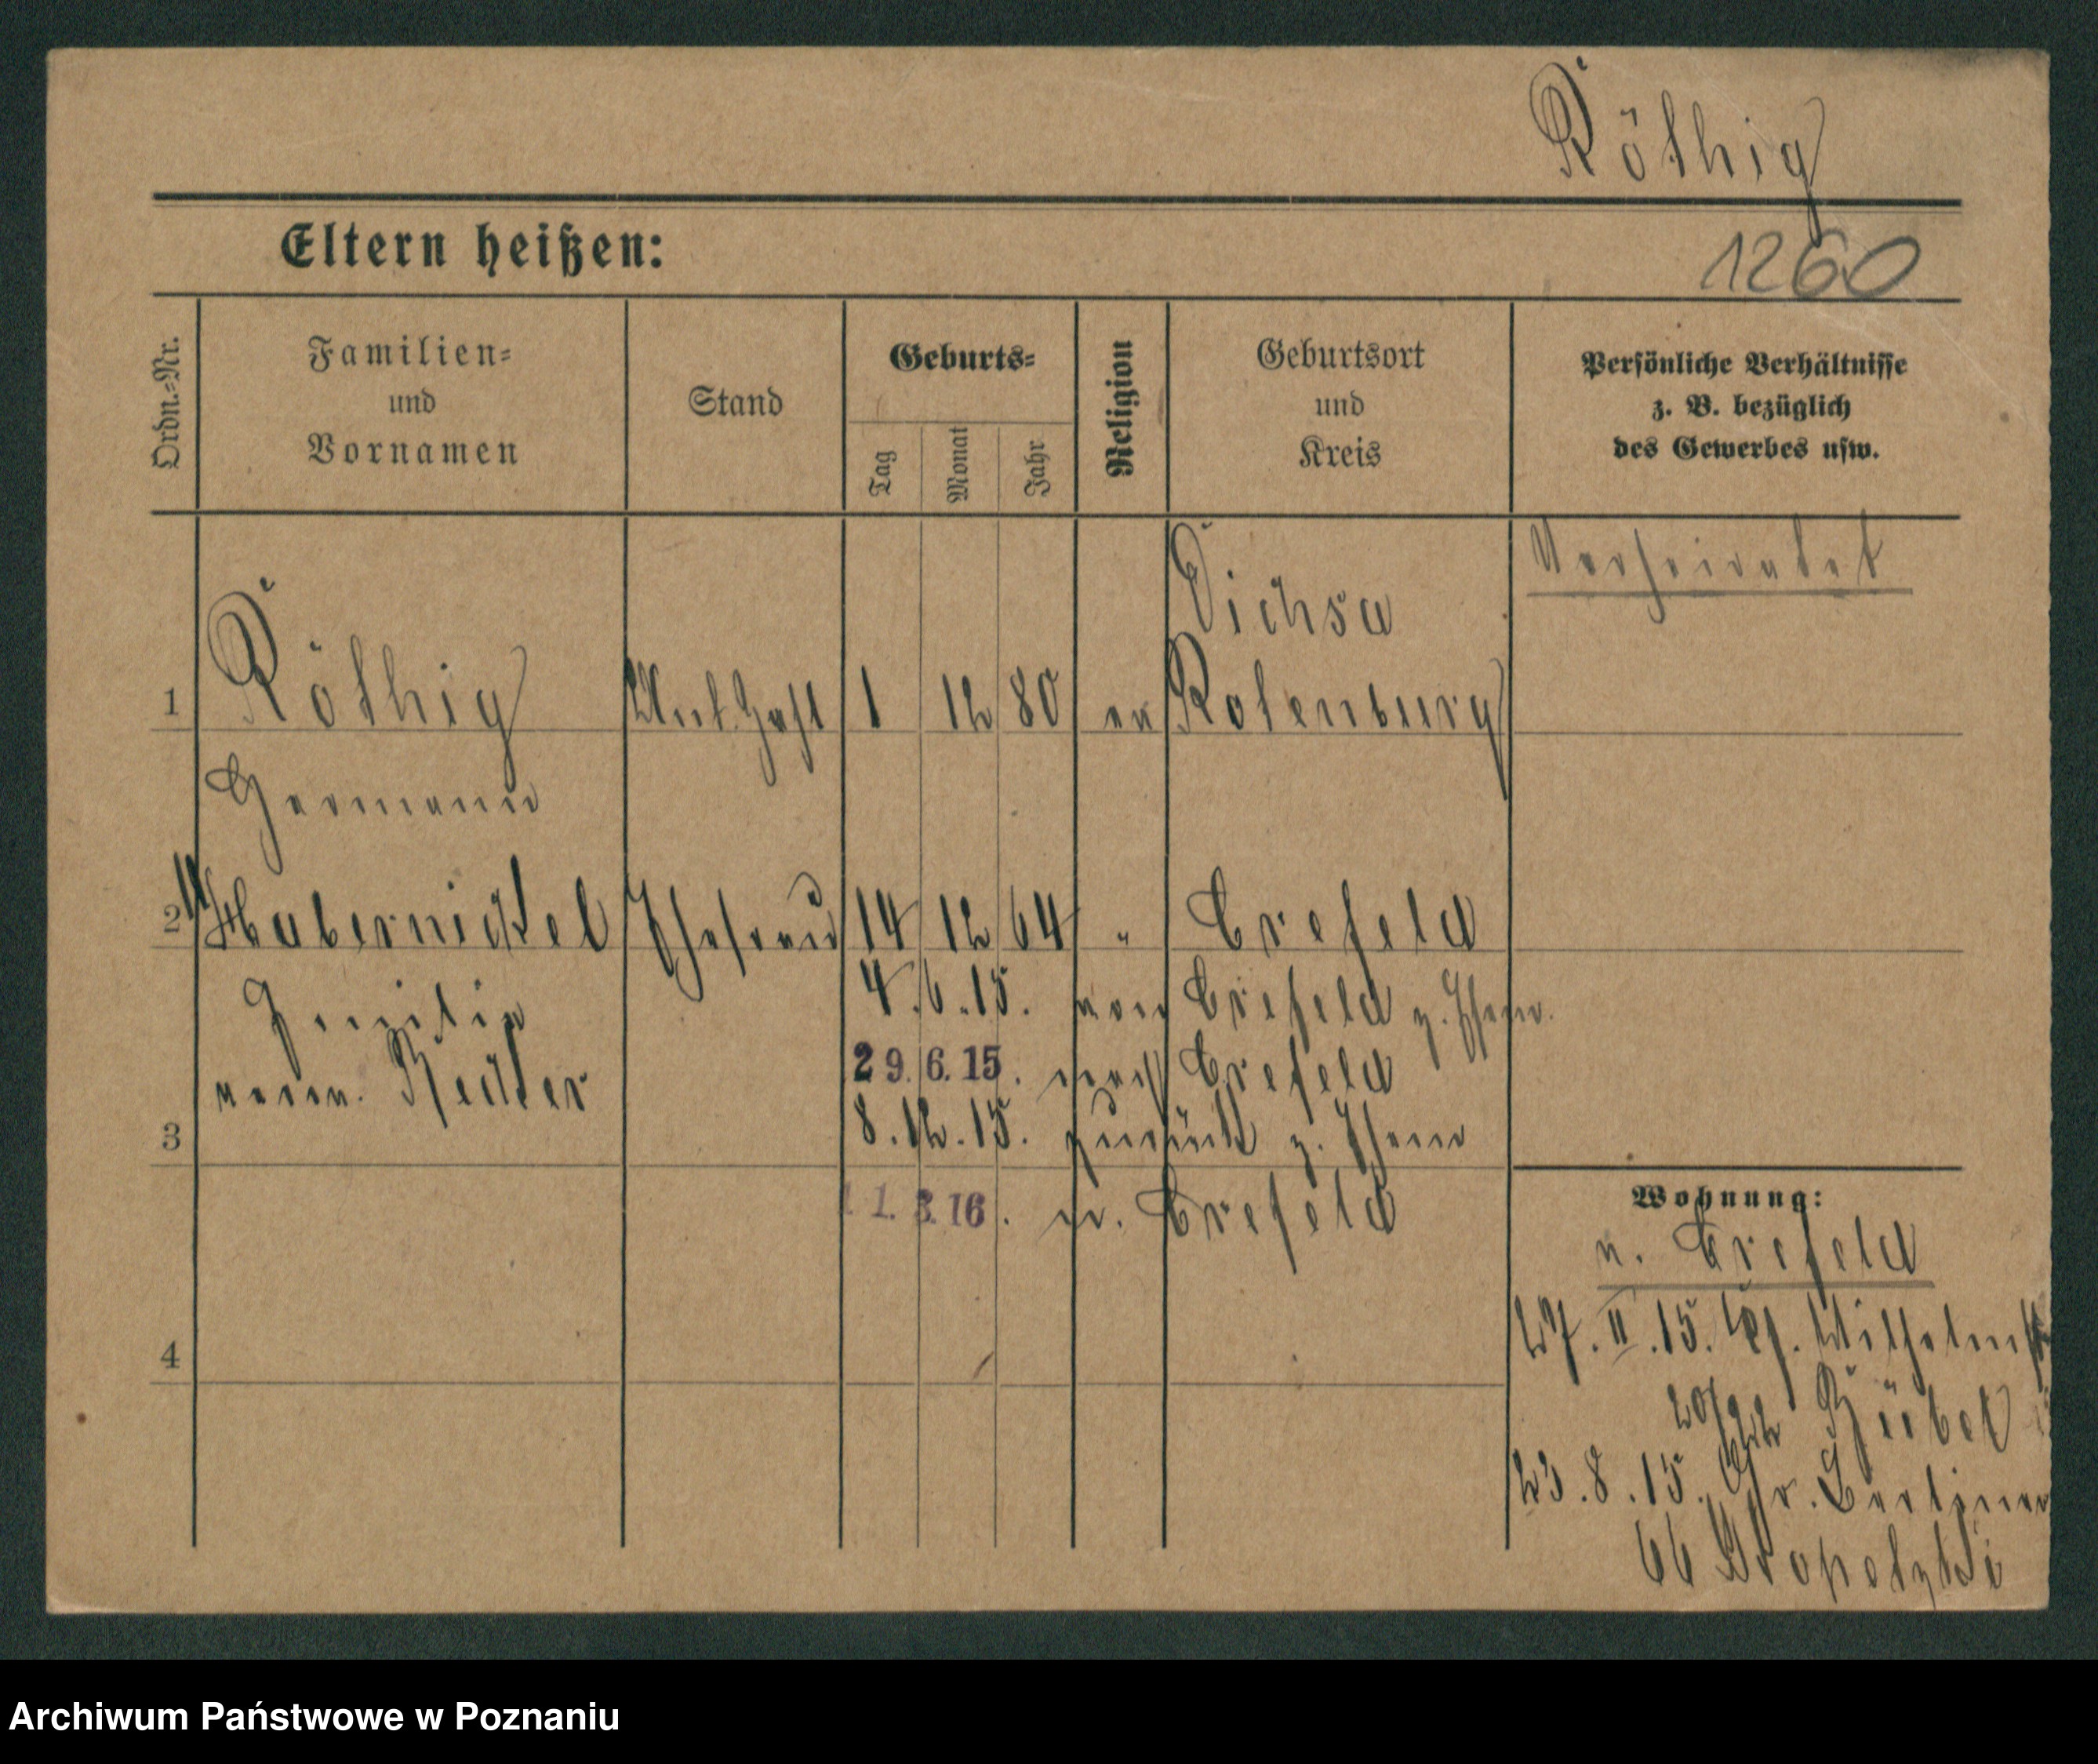 Röthig
Eltern heißen:
1260
Ordn.-Nr.
Familien-
und
Vornamen
Stand
Geburts-
Tag
Monat
Jahr
Religion
Geburtsort
und
Kreis
Persönliche Verhältnisse
z. B. bezüglich
des Gewerbes usw.
Verheiratet
Dichsa
1 Röthig 1 12 80 ev Rotenburg
Hermann
2 Habernickel Ehefrau 14 12 64 " Crefeld
Emilie
verw. Recker
4.6.15. von Crefeld z. Ehem.
29.6.15. nach Crefeld
8.12.15. zurück z. Ehem
3
1.3.16. n. Crefeld
Wohnung:
v. Crefeld
27.II.15. Wilhelmstr
Rübel
4
23.8.15. Gr. Berliner
66
Archiwum Państwowe w Poznaniu